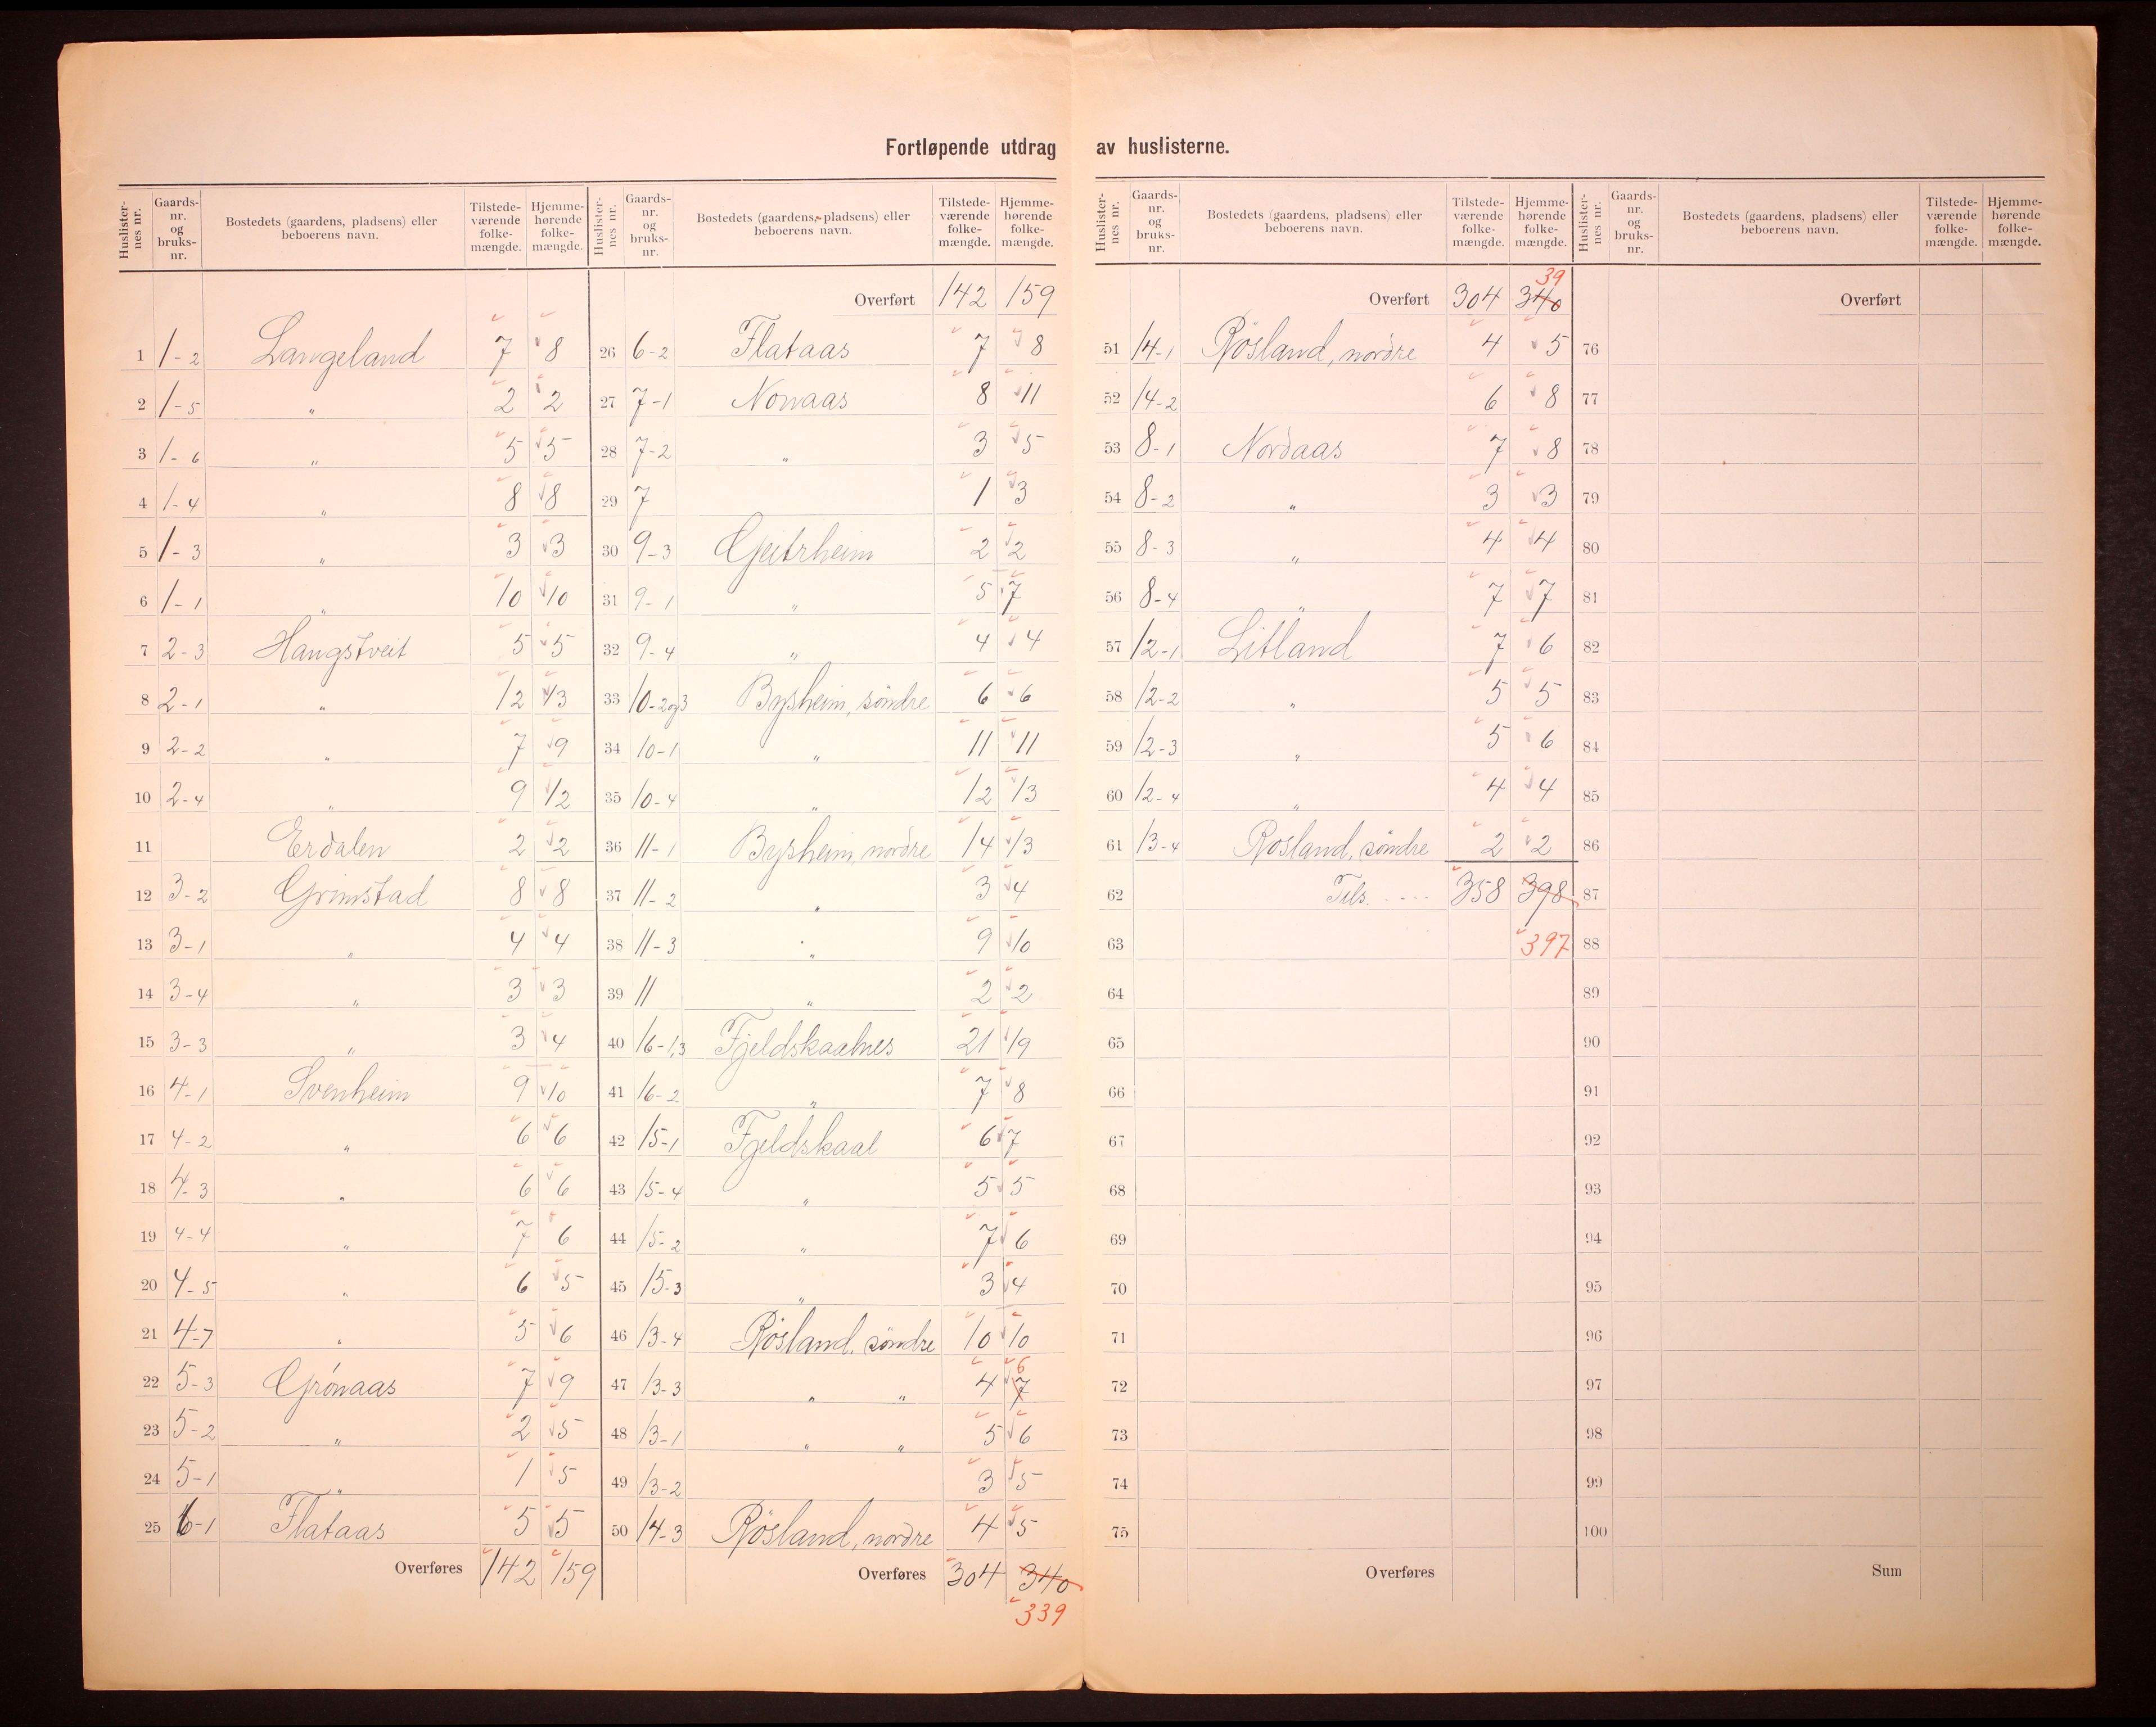 Fortløpende utdrag av huslisterne.
Huslisternes nr. | Gaards-nr. og bruks-nr. | Bostedets (gaardens, pladsens) eller beboerens navn. | Tilstede-værende folke-mængde. | Hjemme-hørende folke-mængde.
1 1-2 Langeland 7 8
2 1-5 " 2 2
3 1-6 " 5 5
4 1-4 " 8 8
5 1-3 " 3 3
6 1-1 " 10 10
7 2-3 Haugstveit 5 5
8 2-1 " 12 13
9 2-2 " 7 9
10 2-4 " 9 12
11 Erdalen 2 2
12 3-2 Grimstad 8 8
13 3-1 " 4 4
14 3-4 " 3 3
15 3-3 " 3 4
16 4-1 Svenheim 9 10
17 4-2 " 6 6
18 4-3 " 6 6
19 4-4 " 7 6
20 4-5 " 6 5
21 4-7 " 5 6
22 5-3 Grönaas 7 9
23 5-2 " 2 5
24 5-1 " 1 5
25 6-1 Flataas 5 5
Overføres 142 159
Huslisternes nr. | Gaards-nr. og bruks-nr. | Bostedets (gaardens, pladsens) eller beboerens navn. | Tilstede-værende folke-mængde. | Hjemme-hørende folke-mængde.
Overført 142 159
26 6-2 Flataas 7 8
27 7-1 Nonaas 8 11
28 7-2 " 3 5
29 7 1 3
30 9-3 Geitrheim 2 2
31 9-1 " 5 7
32 9-4 " 4 4
33 10-2og3 Byrheim, söndre 6 6
34 10-1 " 11 11
35 10-4 " 12 13
36 11-1 Byrheim, nordre 14 13
37 11-2 " 3 4
38 11-3 " 9 10
39 11 " 2 2
40 16-1,3 Fjeldskaalnes 21 19
41 16-2 " 7 8
42 15-1 Fjeldskaal 6 7
43 15-4 " 5 5
44 15-2 " 7 6
45 15-3 " 3 4
46 13-4 Rösland, söndre 10 10
47 13-3 " " 4 7 6
48 13-1 " " 5 6
49 13-2 3 5
50 14-3 Rösland, nordre 4 5
Overføres 304 340
339
Huslisternes nr. | Gaards-nr. og bruks-nr. | Bostedets (gaardens, pladsens) eller beboerens navn. | Tilstede-værende folke-mængde. | Hjemme-hørende folke-mængde.
39
Overført 304 340
51 14-1 Rösland, nordre 4 5
52 14-2 6 8
53 8-1 Nordaas 7 8
54 8-2 " 3 3
55 8-3 " 4 4
56 8-4 " 7 7
57 12-1 Litland 7 6
58 12-2 " 5 5
59 12-3 " 5 6
60 12-4 " 4 4
61 13-4 Rosland, söndre 2 2
62 Tils. .... 358 398
63 397
64
65
66
67
68
69
70
71
72
73
74
75
Overføres
Huslisternes nr. | Gaards-nr. og bruks-nr. | Bostedets (gaardens, pladsens) eller beboerens navn. | Tilstede-værende folke-mængde. | Hjemme-hørende folke-mængde.
Overført
76
77
78
79
80
81
82
83
84
85
86
87
88
89
90
91
92
93
94
95
96
97
98
99
100
Sum